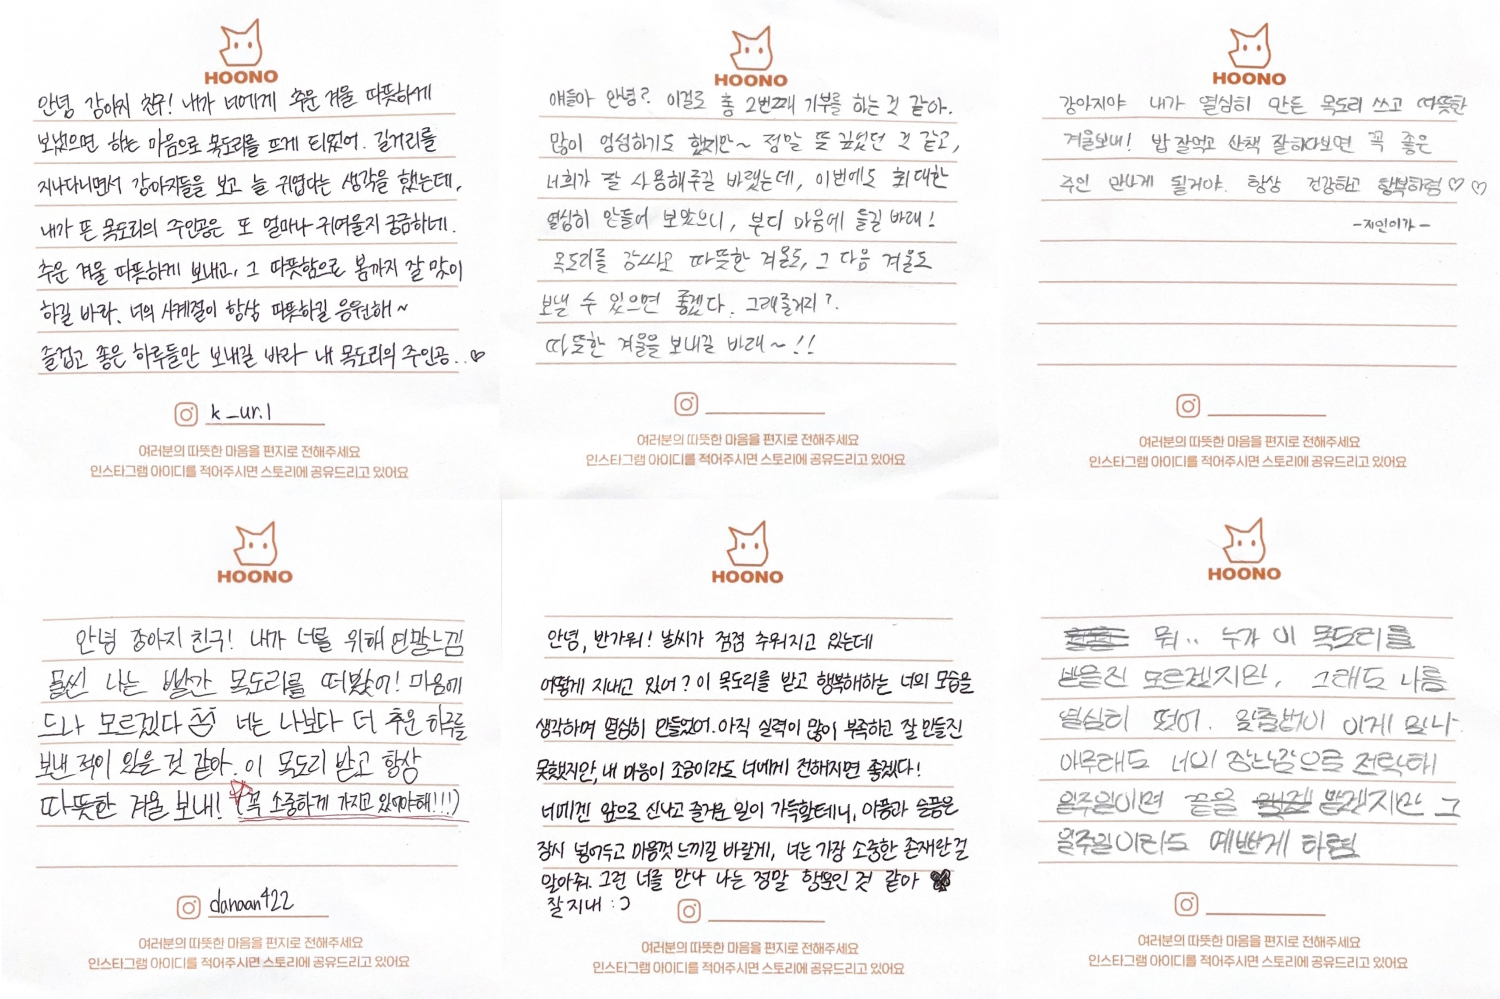 HOONO
안녕 강아지 친구! 내가 너에게 추운 겨울 따뜻하게
보냈으면 하는 마음으로 목도리를 뜨게 되었어. 길거리를
지나다니면서 강아지들을 보고 늘 귀엽다는 생각을 했는데,
내가 뜬 목도리의 주인공은 또 얼마나 귀여울지 궁금하네.
추운 겨울 따뜻하게 보내고, 그 따뜻함으로 봄까지 잘 맞이
하길 바라. 너의 사계절이 항상 따뜻하길 응원해~
즐겁고 좋은 하루들만 보내길 바라 내 목도리의 주인공..♡
k_ur.l
여러분의 따뜻한 마음을 편지로 전해주세요
인스타그램 아이디를 적어주시면 스토리에 공유드리고 있어요
HOONO
얘들아 안녕? 이걸로 총 2번째 기부를 하는 것 같아.
많이 엉성하기도 했지만~ 정말 뜻 깊었던 것 같고,
너희가 잘 사용해주길 바랬는데, 이번에도 최대한
열심히 만들어 보았으니, 부디 마음에 들길 바래!
목도리를 감싸고 따뜻한 겨울도, 그 다음 겨울도
보낼 수 있으면 좋겠다. 그래줄거지?
따뜻한 겨울을 보내길 바래~!!
여러분의 따뜻한 마음을 편지로 전해주세요
인스타그램 아이디를 적어주시면 스토리에 공유드리고 있어요
HOONO
강아지야 내가 열심히 만든 목도리 쓰고 따뜻한
겨울보내! 밥 잘먹고 산책 잘하다보면 꼭 좋은
주인 만나게 될거야. 항상 건강하고 행복하렴♡♡
-지인이가-
여러분의 따뜻한 마음을 편지로 전해주세요
인스타그램 아이디를 적어주시면 스토리에 공유드리고 있어요
HOONO
안녕 강아지 친구! 내가 너를 위해 연말느낌
물씬 나는 빨간 목도리를 떠봤어! 마음에
드나 모르겠다 너는 나보다 더 추운 하루를
보낸 적이 있을 것 같아. 이 목도리 받고 항상
따뜻한 겨울 보내! (꼭 소중하게 가지고 있어야해!!!)
danaan422
여러분의 따뜻한 마음을 편지로 전해주세요
인스타그램 아이디를 적어주시면 스토리에 공유드리고 있어요
HOONO
안녕, 반가워! 날씨가 점점 추워지고 있는데
어떻게 지내고 있어? 이 목도리를 받고 행복해하는 너의 모습을
생각하며 열심히 만들었어. 아직 실력이 많이 부족하고 잘 만들진
못했지만, 내 마음이 조금이라도 너에게 전해지면 좋겠다!
너에겐 앞으로 신나고 즐거운 일이 가득할테니, 아픔과 슬픔은
잠시 넣어두고 마음껏 느끼길 바랄게, 너는 가장 소중한 존재란 걸
알아줘. 그런 너를 만나 나는 정말 행운인 것 같아
잘 지내 :)
여러분의 따뜻한 마음을 편지로 전해주세요
인스타그램 아이디를 적어주시면 스토리에 공유드리고 있어요
HOONO
뭐.. 누가 이 목도리를
받을진 모르겠지만, 그래도 나름
열심히 떴어. 이게 만나
아무래도 너의 장난감으로 전락해
일주일이면 끝을 맞겠지만 그
일주일이라도 예쁘게 하렴
여러분의 따뜻한 마음을 편지로 전해주세요
인스타그램 아이디를 적어주시면 스토리에 공유드리고 있어요